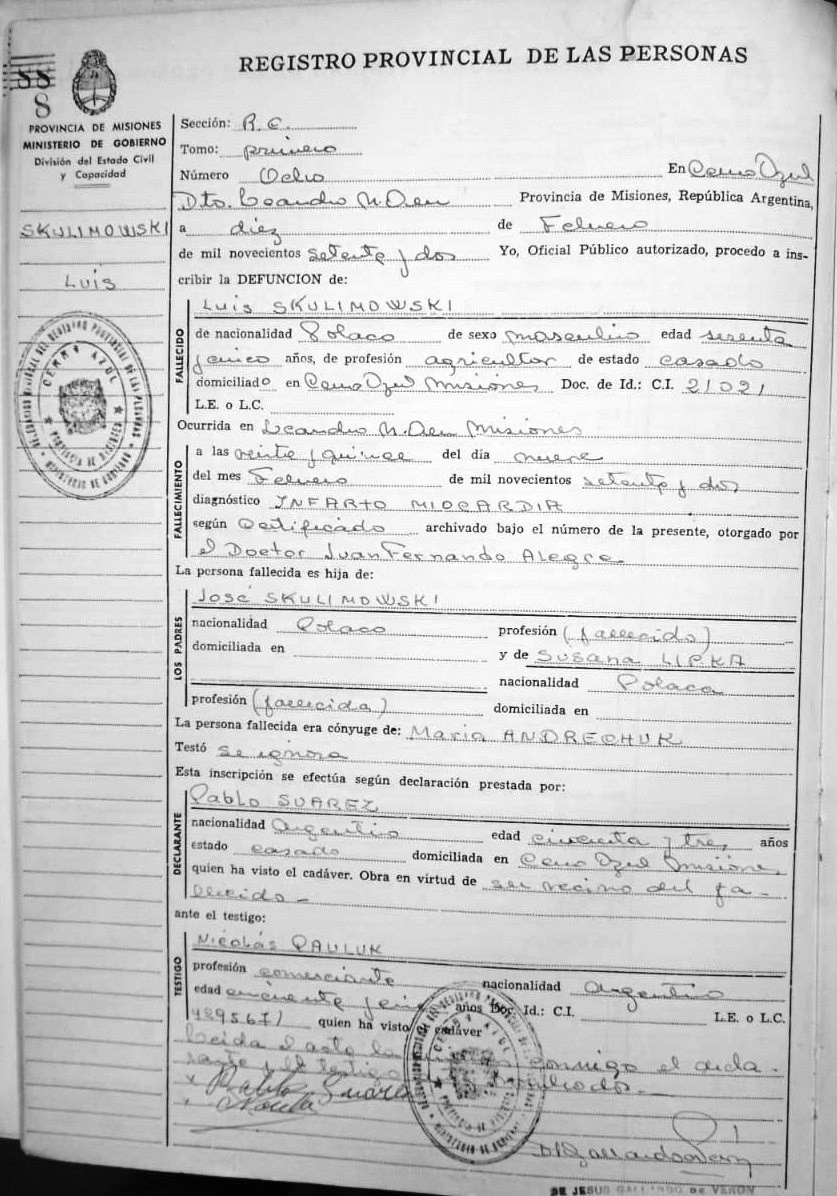 REGISTRO PROVINCIAL DE LAS PERSONAS
88
8
PROVINCIA DE MISIONES
MINISTERIO DE GOBIERNO
División del Estado Civil
y Capacidad
SKULIMOWSKI
Luis
CERRO AZUL
Sección: R.C.
Tomo: primero
Número Ocho En Cerro Azul
Dto. Leandro N. Alem Provincia de Misiones, República Argentina,
a diez de Febrero
de mil novecientos setenta y dos Yo, Oficial Público autorizado, procedo a ins-
cribir la DEFUNCION de:
FALLECIDO
Luis SKULIMOWSKI
de nacionalidad Polaco de sexo masculino edad sesenta
y cinco años, de profesión agricultor de estado casado
domiciliado en Cerro Azul Misiones Doc. de Id.: C.I. 21021
L.E. o L.C.
Ocurrida en Leandro N. Alem Misiones
FALLECIMIENTO
a las veinte y quince del día nueve
del mes Febrero de mil novecientos setenta y dos
diagnóstico INFARTO MIOCARDIA
según Certificado archivado bajo el número de la presente, otorgado por
el Doctor Juan Fernando Alegre
La persona fallecida es hija de:
LOS PADRES
José SKULIMOWSKI
nacionalidad Polaco profesión (fallecido)
domiciliada en y de Susana LIPKA
nacionalidad Polaca
profesión (fallecida) domiciliada en
La persona fallecida era cónyuge de: Maria ANDRECHUK
Testó se ignora
Esta inscripción se efectúa según declaración prestada por:
DECLARANTE
Pablo SUAREZ
nacionalidad Argentino edad cincuenta y tres años
estado casado domiciliada en Cerro Azul Misiones
quien ha visto el cadáver. Obra en virtud de ser vecino del fa-
llecido -
ante el testigo:
TESTIGO
Nicolás PAULUK
profesión comerciante nacionalidad Argentino
edad cincuenta y años Doc. Id.: C.I. L.E. o L.C.
4895671 quien ha visto cadáver
Leida el acta la conmigo el decla-
rante y el testigo
Pablo Suarez
DE JESUS GALLARDO DE VERON